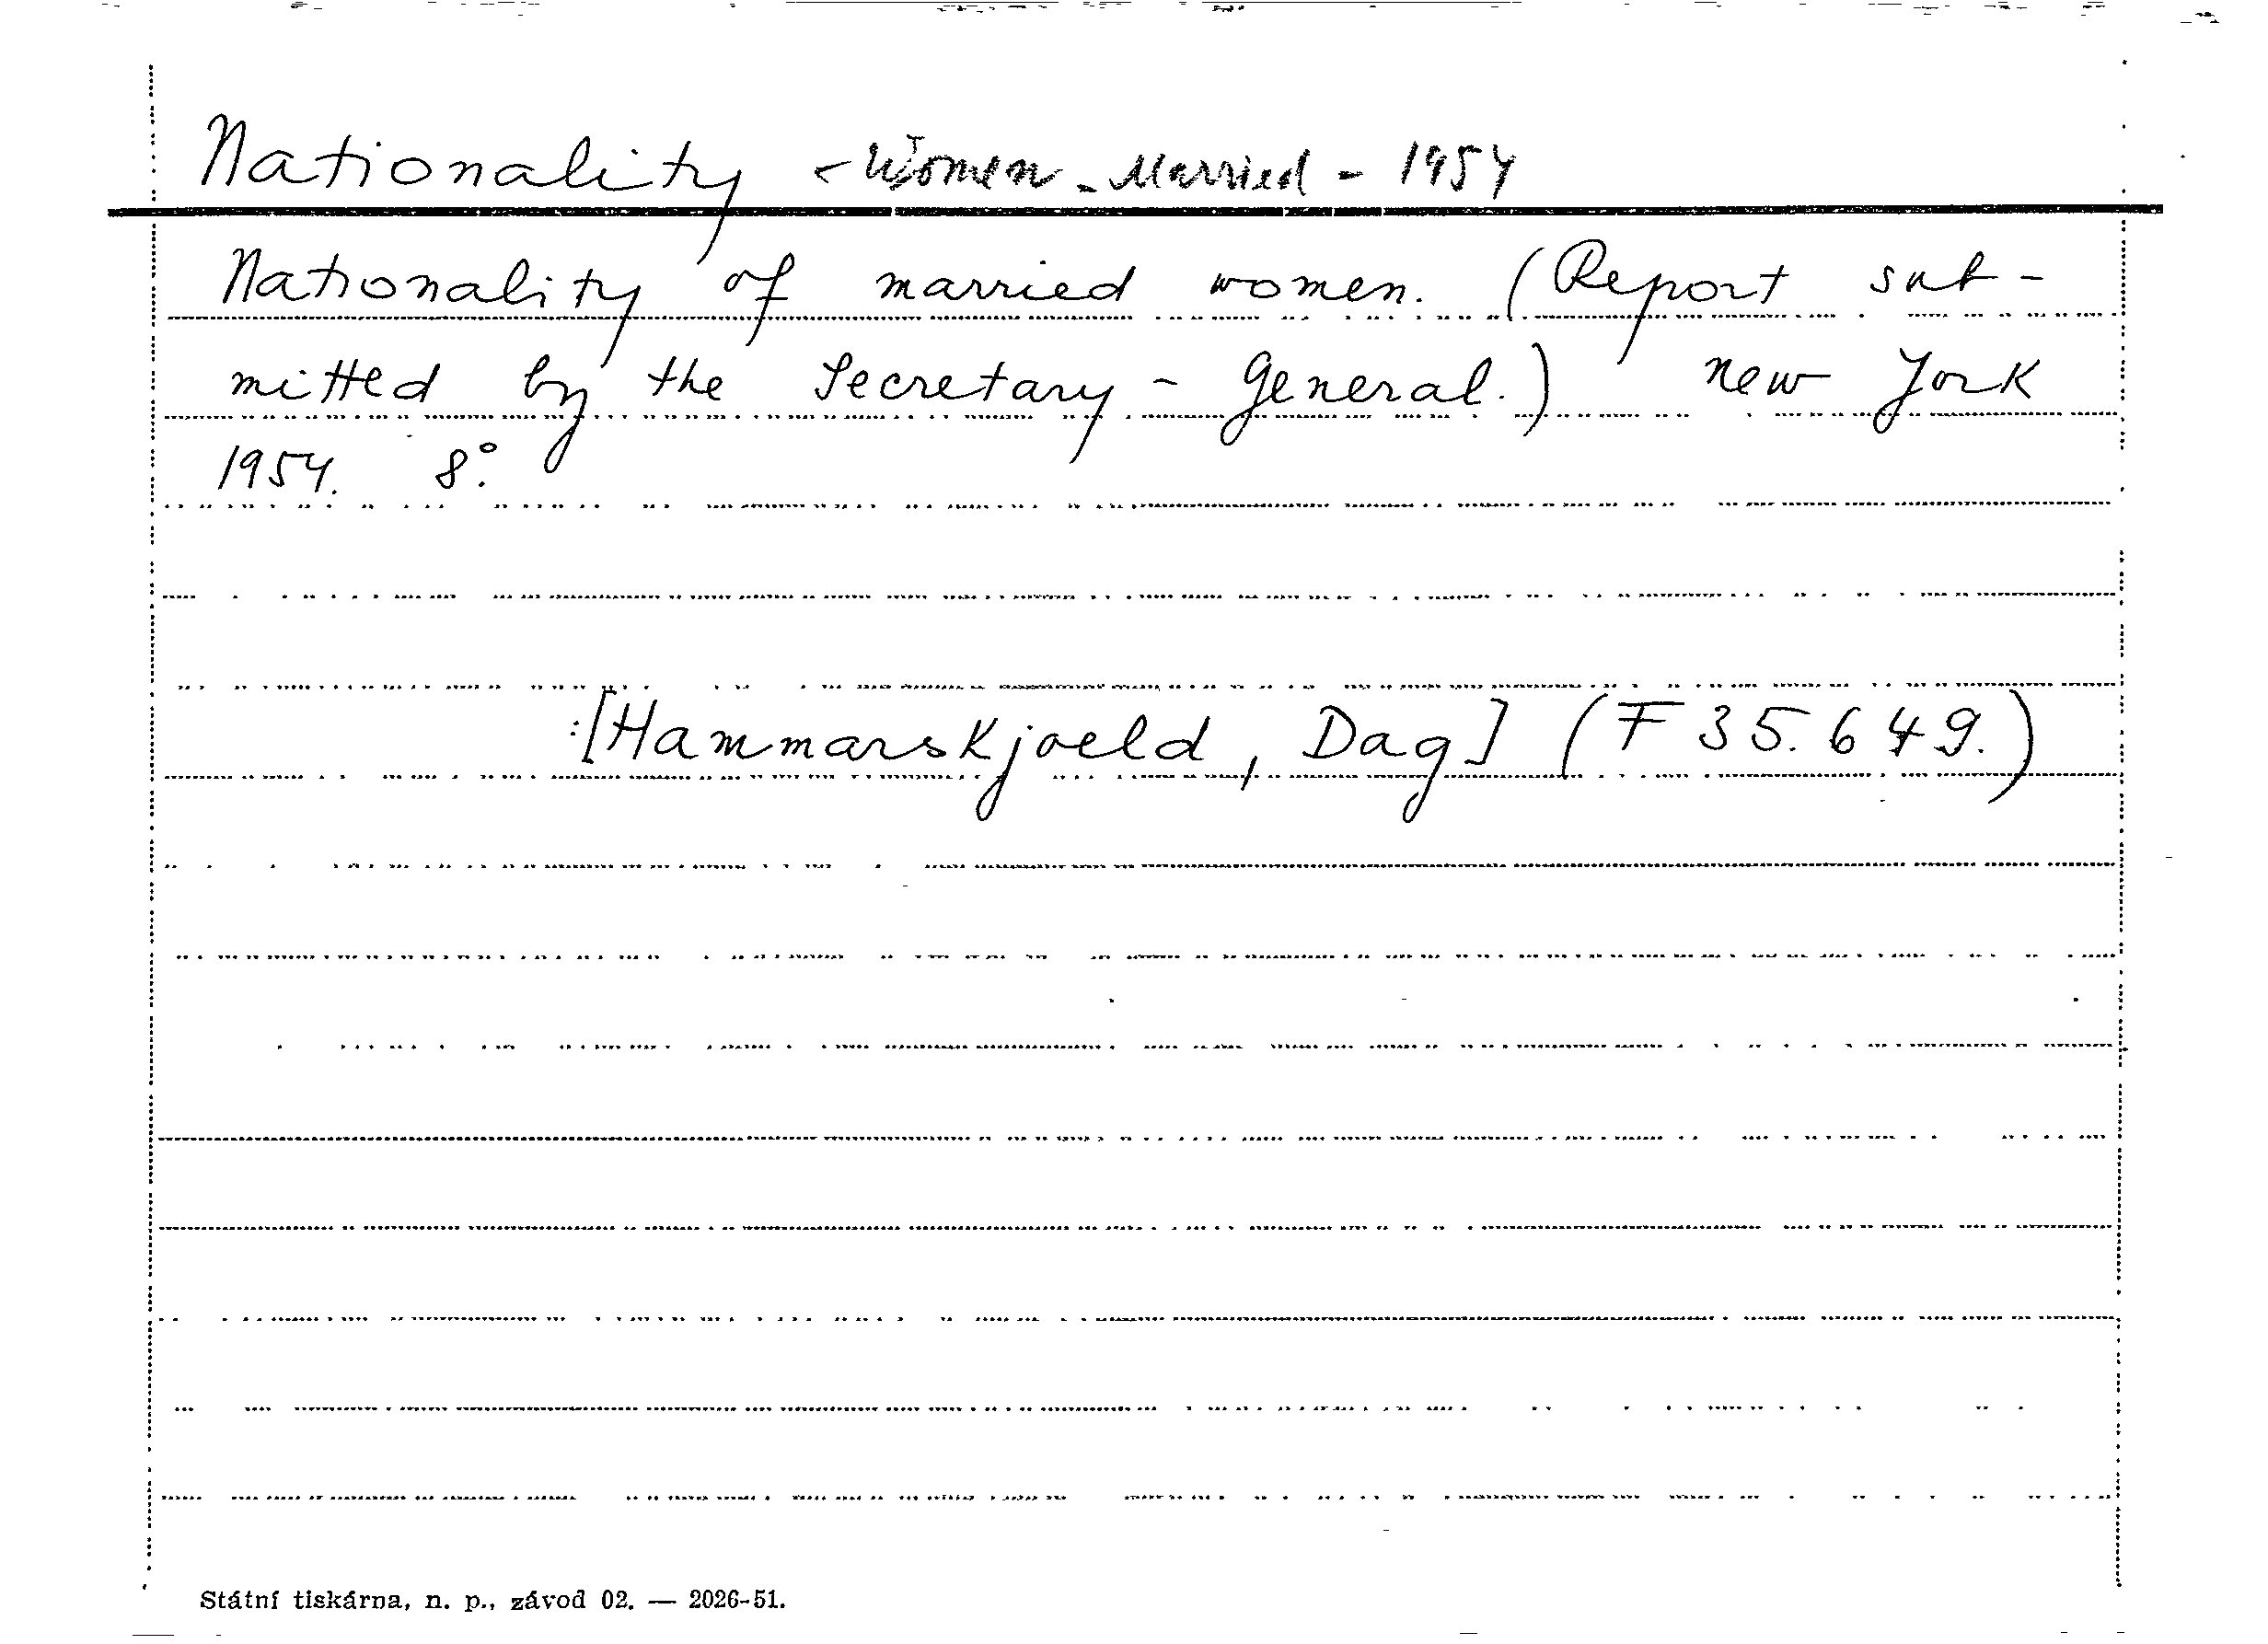 Nationality - Women - Married - 1954
Nationality of married women. (Report sub-
mitted by the Secretary - General.) New York
1954. 8°.
:[Hammarskjoeld, Dag] (F 35.649.)
Státní tiskárna, n. p., závod 02. — 2026-51.